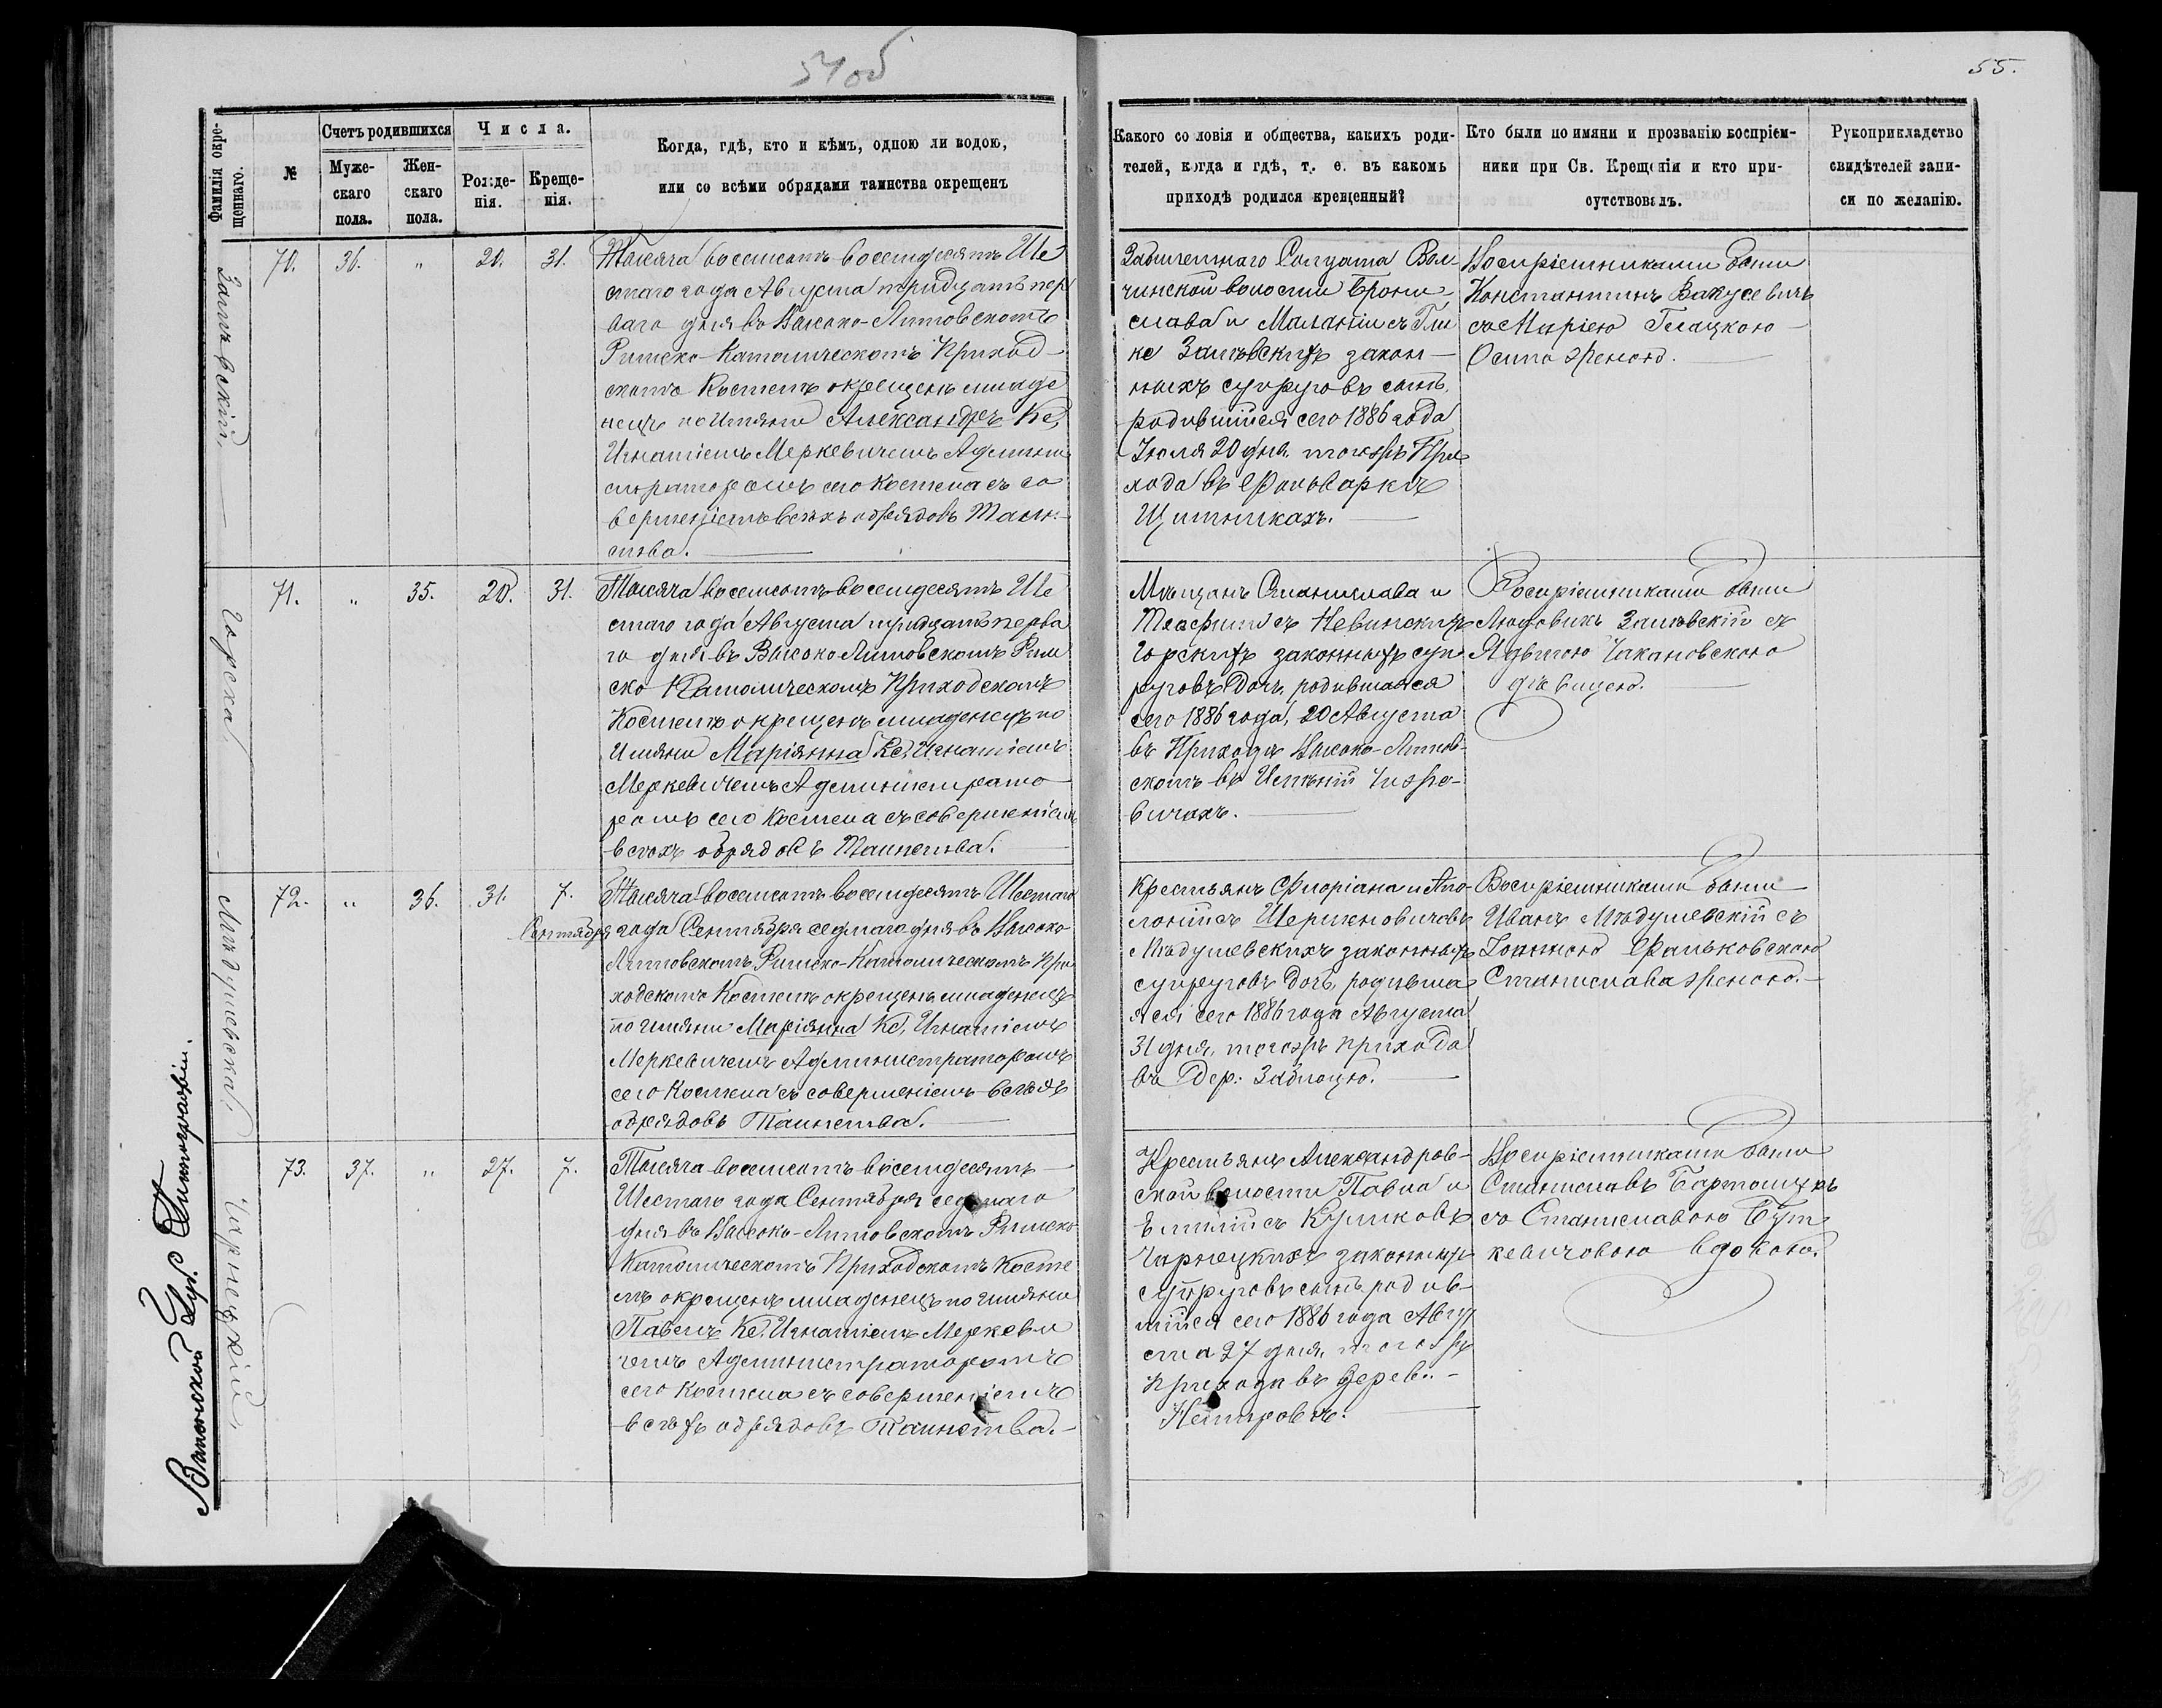 54 об
55.
Фамилія окре-
щеннаго.
№
Счетъ родившихся
Муже-
скаго
пола.
Жен-
скаго
пола.
Числа.
Рожде-
нія.
Креще-
нія.
Когда, гдѣ, кто и кѣмъ, одною ли водою,
или со всѣми обрядами таинства окрещенъ
Какого сословія и общества, какихъ роди-
телей, когда и гдѣ, т. е. въ какомъ
приходѣ родился крещенный?
Кто были по имяни и прозванію воспріем-
ники при Св. Крещеніи и кто при-
сутствовалъ.
Рукоприкладство
свидѣтелей запи-
си по желанію.
70.
36.
"
20.
31.
Тысяча восемсотъ восемдесятъ Ше
стаго года Августа тридцать пер
ваго дня въ Высоко-Литовскомъ
Римско-Католическомъ Приход-
скомъ Костелѣ окрещенъ младе
нецъ по Имяни Александръ Кс.
Игнатіемъ Меркевичемъ Админи
страторомъ сего Костела съ со
вершеніемъ всѣхъ обрядовъ Таин-
ства.
Солдата Вол-
чинской волости Брони-
слава и Маланіи съ
законн-
ныхъ супруговъ сынъ,
родившійся сего 1886 года
Іюля 20 дня. тогожъ При
хода въ Фольваркѣ
Щитникахъ.
Воспріемниками были
Константинъ Вакусевичъ
съ Маріею Гладкою
Осипа женою.
71.
"
35.
20.
31.
Горская
Тысяча восемсотъ восемдесятъ Ше
стаго года Августа тридцать перва
го дня въ Высоко Литовскомъ Рим
ско Католическомъ Приходскомъ
Костелѣ окрещенъ младенецъ по
Имяни Маріянна Кс. Игнатіемъ
Меркевичемъ Администрато
ромъ сего Костела съ совершеніемъ
всѣхъ обрядовъ Таинства.
Мѣщанъ Станислава и
Теофили съ Невинскихъ
Горскихъ законныхъ суп
руговъ Дочь, родившаяся
сего 1886 года, 20 Августа
въ Приходѣ Высоко-Литов-
скомъ въ Имѣніи
Воспріемниками были
Людовикъ съ
Ядвигою Чакановскою
дѣвицею.
72.
"
36.
31.
7.
Сентября
Мѣдушевская
Тысяча восемсотъ восемдесятъ Шестаго
года Сентября седмаго дня въ Высоко
Литовскомъ Римско-Католическомъ При
ходскомъ Костелѣ окрещенъ младенецъ
по имяни Маріянна Кс. Игнатіемъ
Меркевичемъ Администраторомъ
сего Костела съ совершеніемъ всѣхъ
обрядовъ Таинства.
Крестьянъ Флоріана и Апо-
лоніи съ Шершеновичовъ
Мѣдушевскихъ законныхъ
супруговъ Дочь, родивша
яся сего 1886 года Августа
31 дня, тогожъ прихода
въ Дер:
Воспріемниками были
Иванъ Мѣдушевскій съ
Іоанною Фальковскою
Станислава женою.
73.
37.
"
27.
7.
Чарнецкій
Тысяча восемсотъ восемдесятъ
Шестаго года Сентября седмаго
дня въ Высоко-Литовскомъ Римско
Католическомъ Приходскомъ Косте
лѣ окрещенъ младенецъ по имяни
Павелъ Кс. Игнатіемъ Меркеви
чемъ Администраторомъ
сего Костела съ совершеніемъ
всѣхъ обрядовъ Таинства.
Крестьянъ Александров-
ской волости Павла и
Емиліи съ Куликовъ
Чарнецкихъ законныхъ
супруговъ сынъ родив-
шійся сего 1886 года Авгу
ста 27 дня, тогожъ
прихода въ дерев.
Воспріемниками были
Станиславъ Бартошукъ
съ Станиславою Бут
кевичовою вдовою.
Виленской Губ. Типографіи.